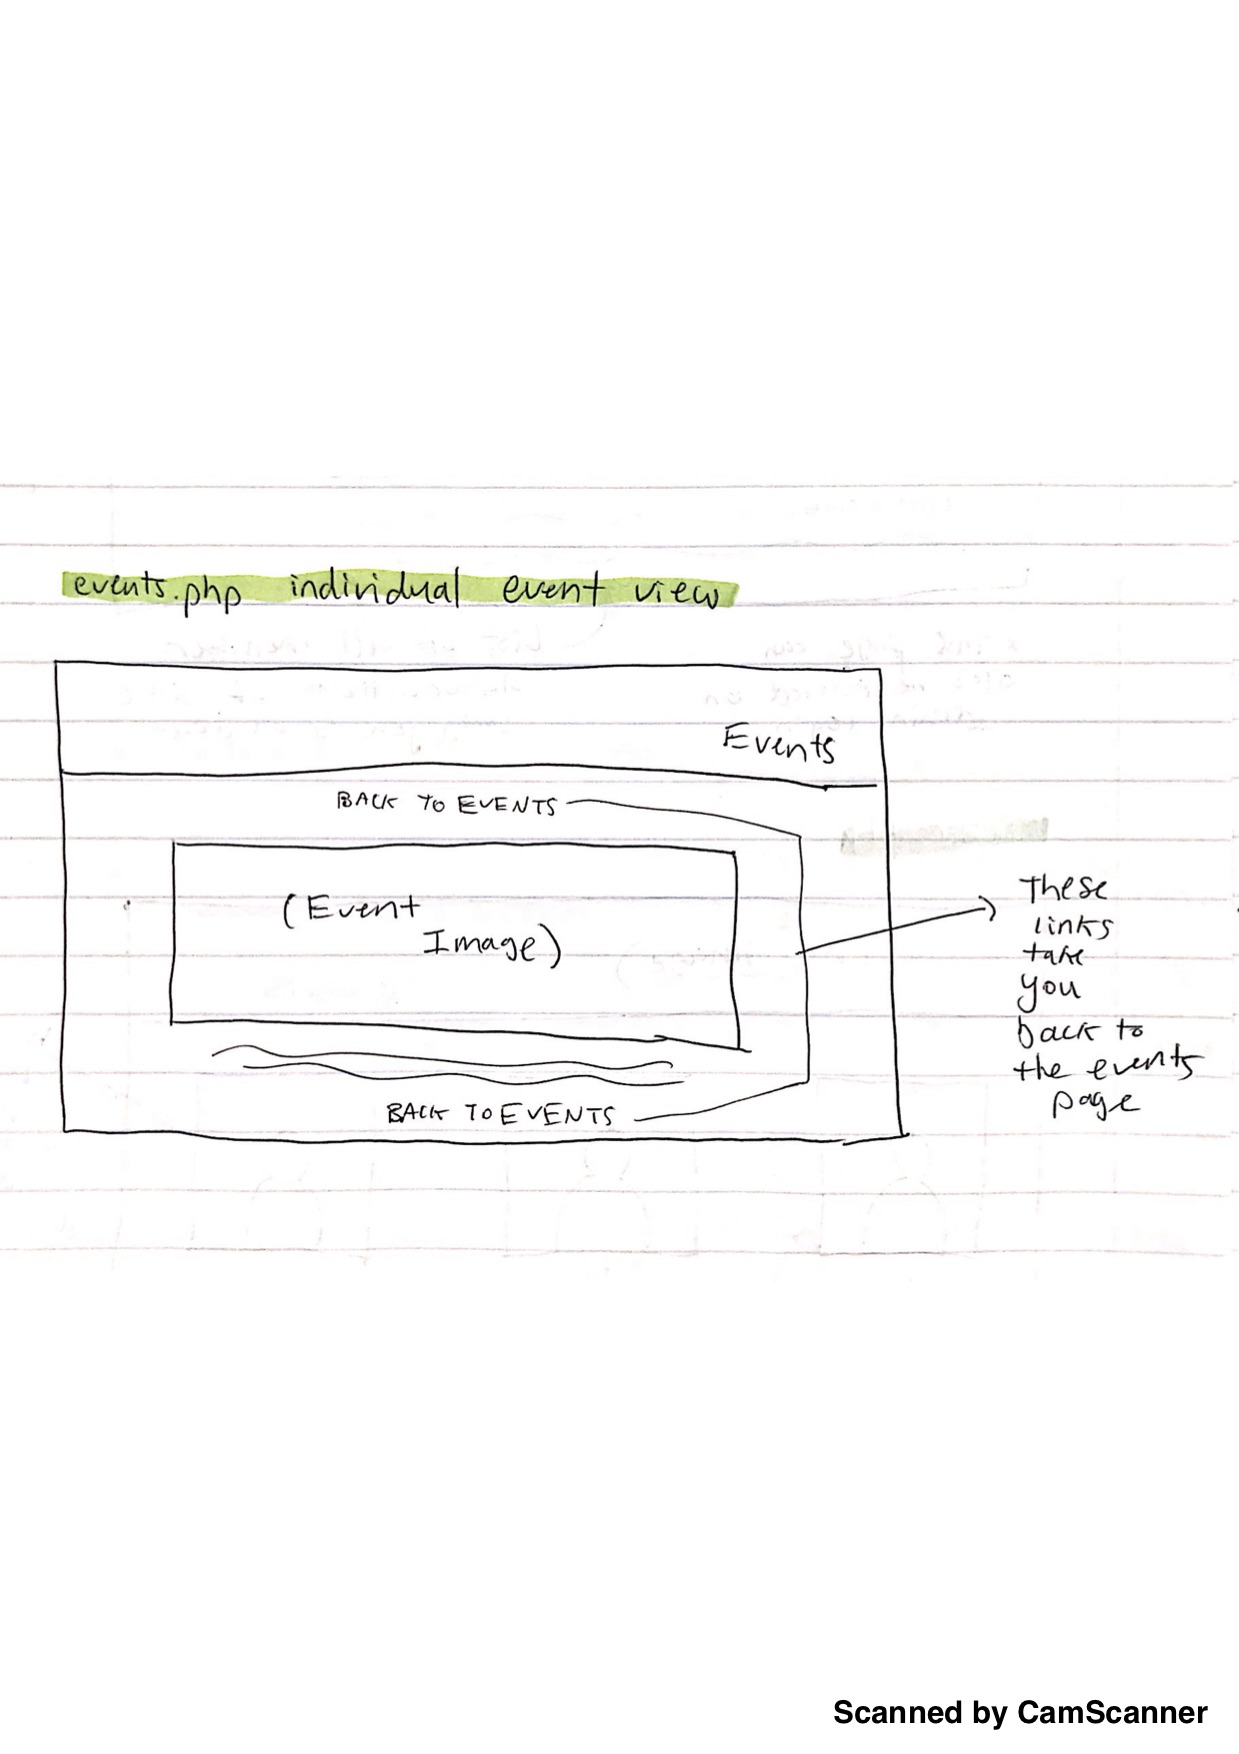 events.php individual event view
Events
BACK TO EVENTS
(Event
Image)
BACK TO EVENTS
These
links
take
you
back to
the events
page
Scanned by CamScanner